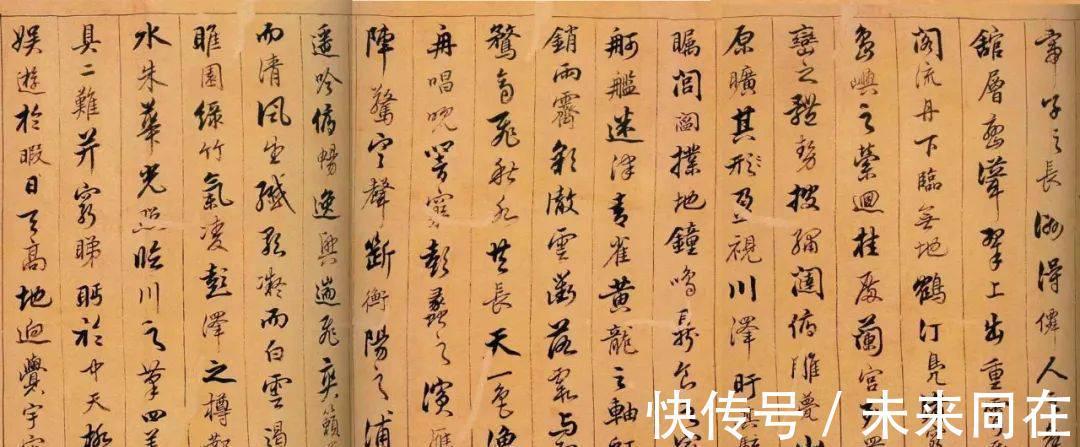 帝子之長洲得僊人
舘層巒聳翠上出重霄
閣流丹下臨無地鶴汀鳧
島嶼之縈迴桂殿蘭宮
巒之體勢披繡闥俯雕甍
原曠其視川澤盱其
矚閭閻撲地鐘鳴鼎食
舸艦迷津青雀黄龍之軸
銷雨霽彩徹雲衢落霞与
鶩齊飛秋水共長天一色
舟唱晚響窮彭蠡之濱雁
陣驚寒聲斷衡陽之浦
遥吟俯暢逸興遄飛爽籟
而清風生纖歌凝而白雲遏
睢園緑竹氣凌彭澤之樽鄴
水朱華光照臨川之筆四美
具二難并窮睇眄於中天極
娱遊於暇日天高地迥覺宇宙
快传号 / 未来同在